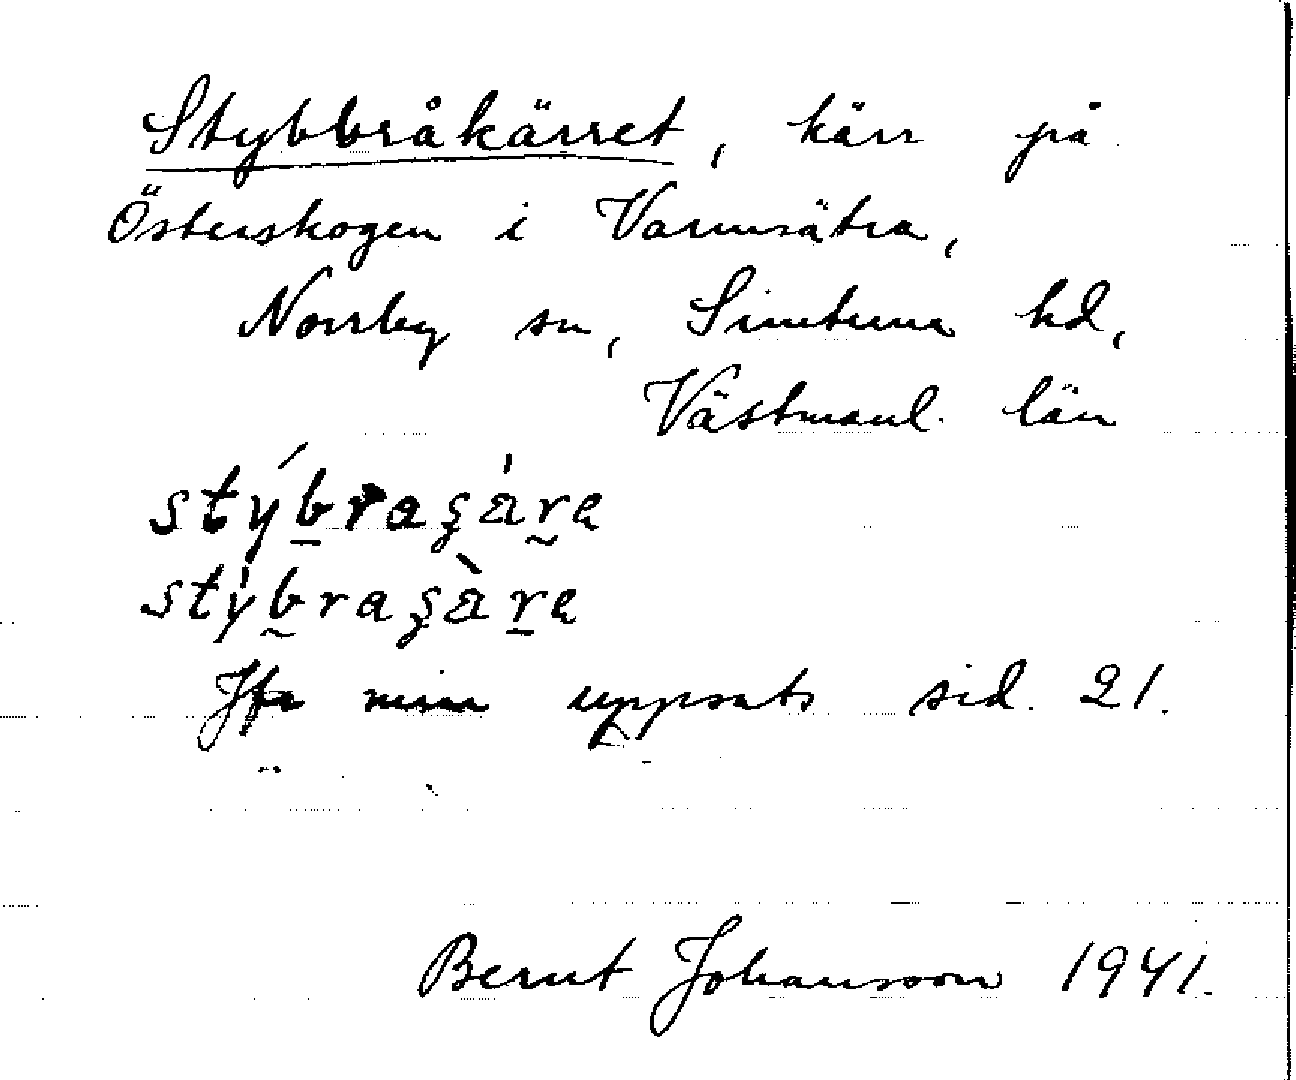 Stybbråkärret, kärr på
Österskogen i Varmsätra,
Norrby sn, Simtuna hd,
Västmanl. län
stýb̲raʂár̰a
stýb̰raʂàr̲a
Jfr min uppsats sid. 21.
Bernt Johansson 1941.